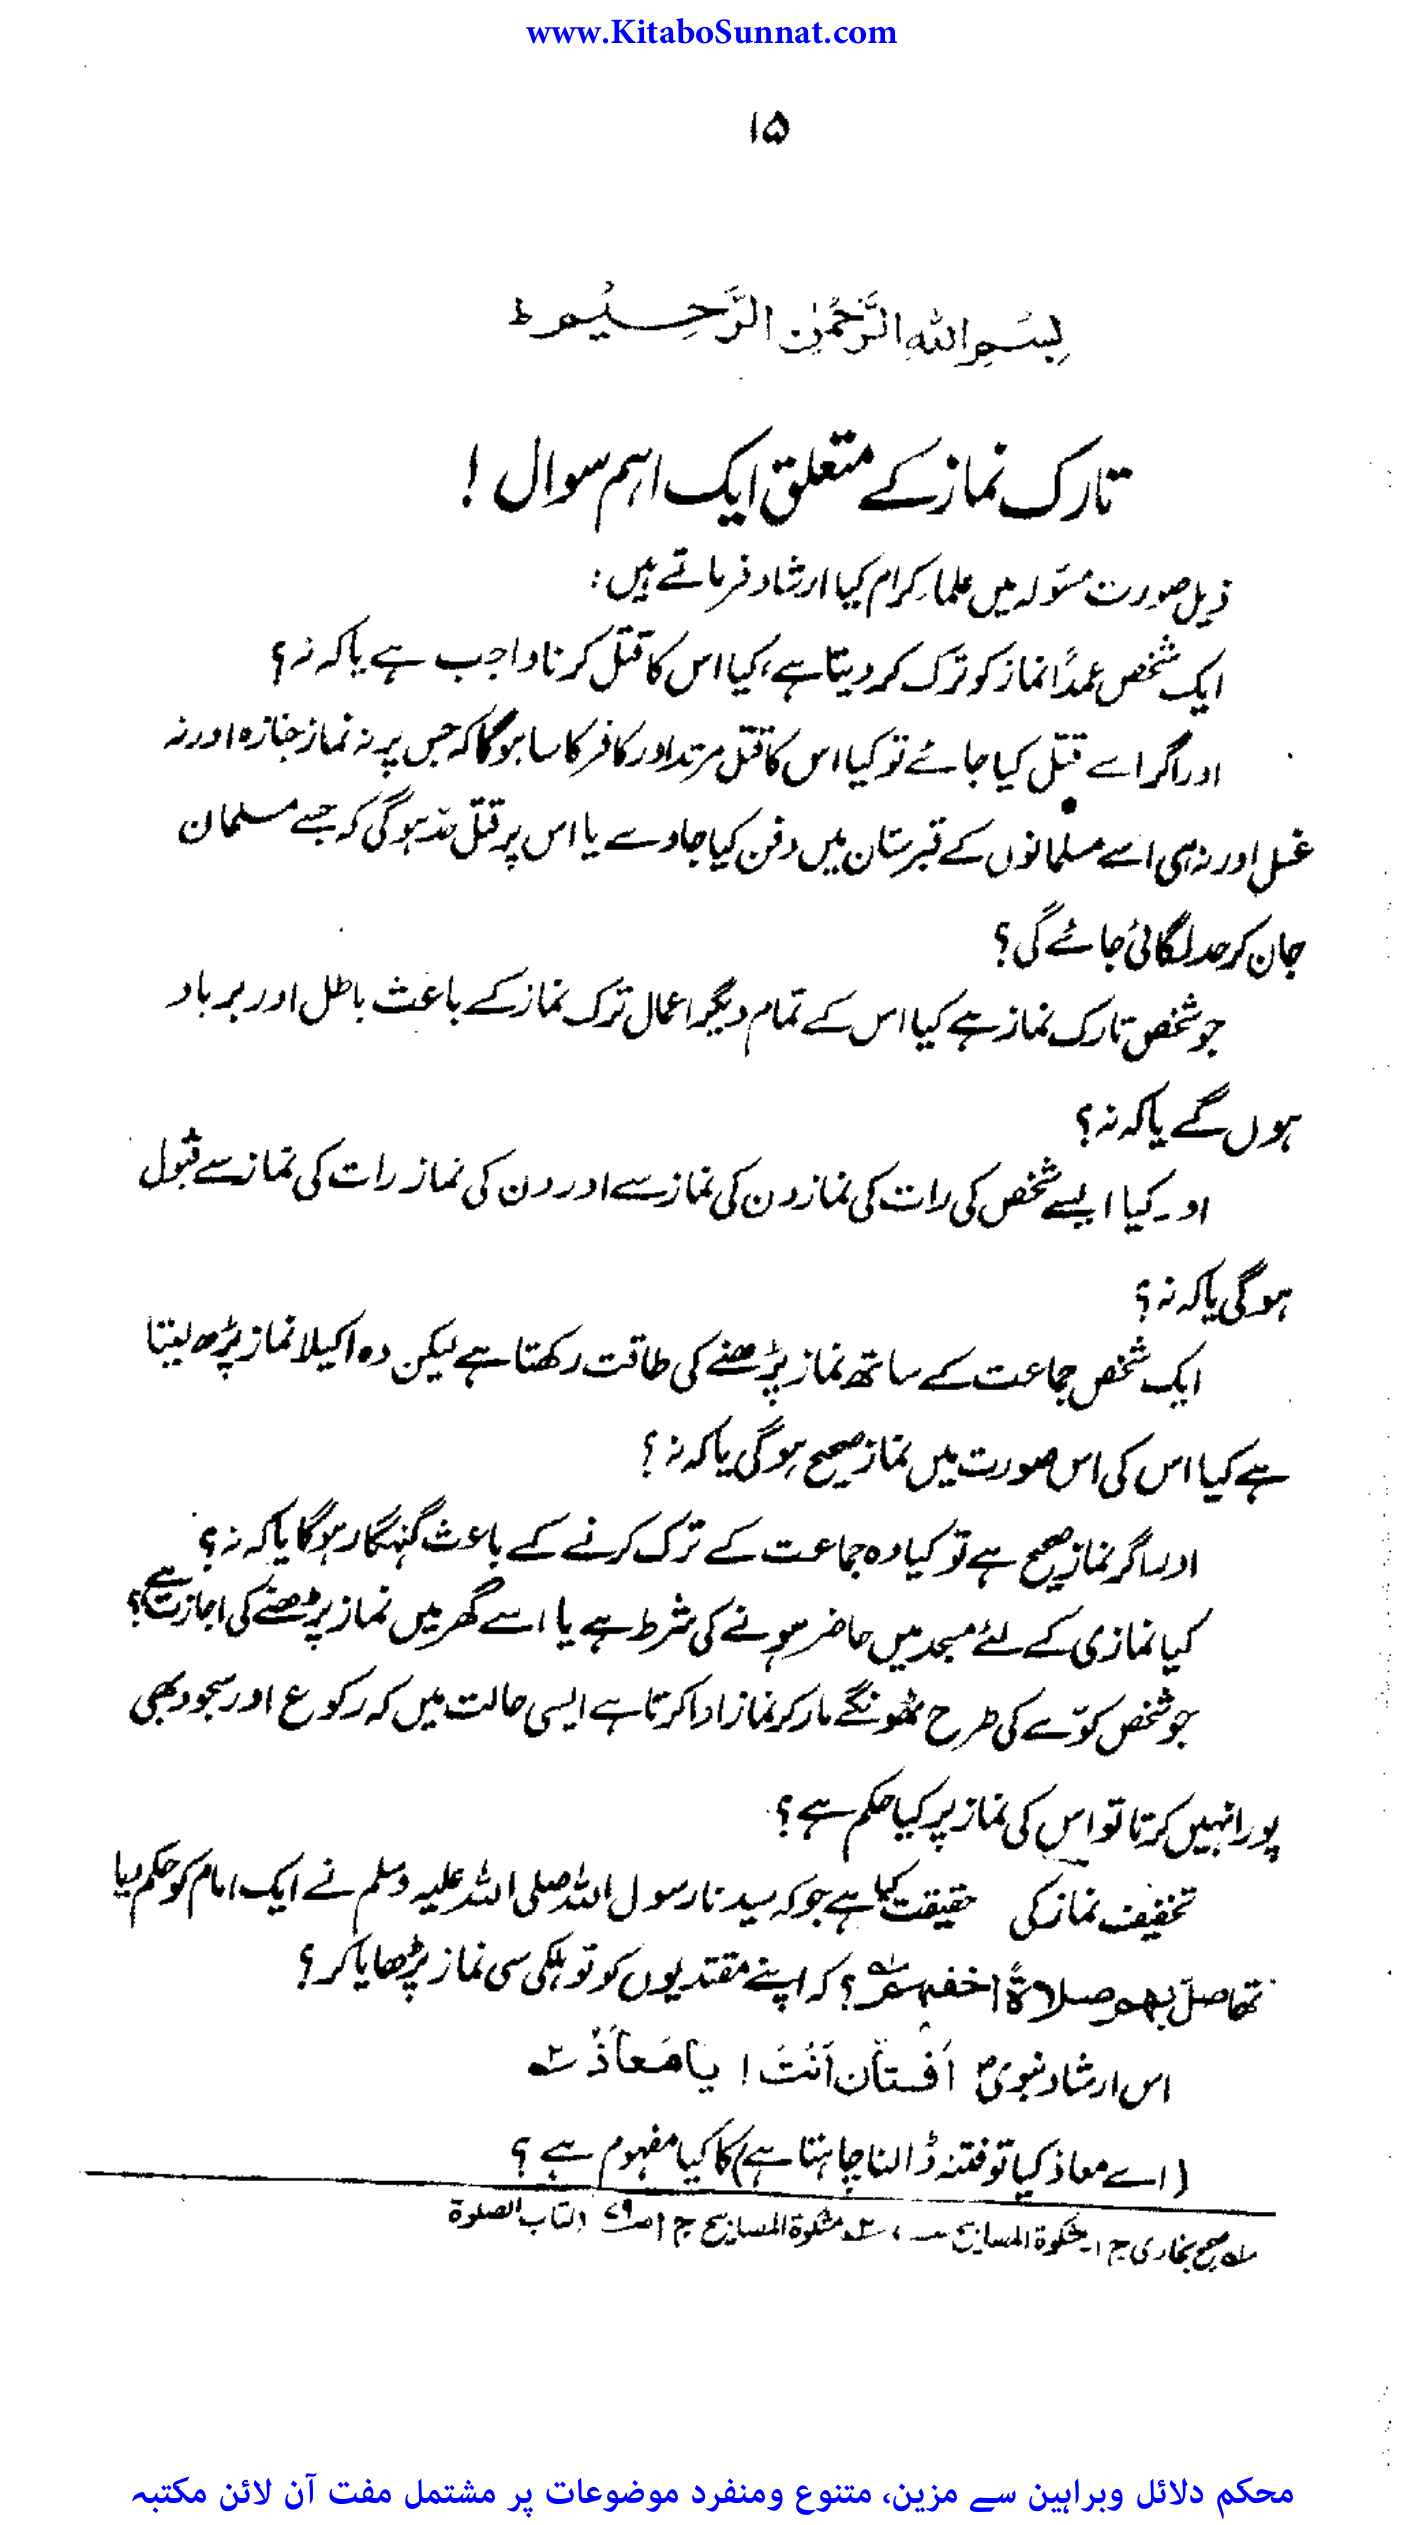 www.KitaboSunnat.com
۱۵
بِسْمِ اللهِ الرَّحْمٰنِ الرَّحِيْمِ ط
تارک نماز کے متعلق ایک اہم سوال !
ذیل صورت مسئولہ میں علماء کرام کیا ارشاد فرماتے ہیں :
ایک شخص عمداً نماز کو ترک کر دیتا ہے، کیا اس کا قتل کرنا واجب ہے یا کہ نہ؟
اور اگر اسے قتل کیا جائے تو کیا اس کا قتل مرتد اور کافر کا سا ہوگا کہ جس پر نہ نماز جنازہ اور نہ
غسل اور نہ ہی اسے مسلمانوں کے قبرستان میں دفن کیا جاوے یا اس پر قتل حد ہوگی کہ جسے مسلمان
جان کر حد لگائی جائے گی؟
جو شخص تارک نماز ہے کیا اس کے تمام دیگر اعمال ترک نماز کے باعث باطل اور برباد
ہوں گے یا کہ نہ؟
اور کیا ایسے شخص کی رات کی نماز دن کی نماز سے اور دن کی نماز رات کی نماز سے قبول
ہوگی یا کہ نہ؟
ایک شخص جماعت کے ساتھ نماز پڑھنے کی طاقت رکھتا ہے لیکن وہ اکیلا نماز پڑھ لیتا
ہے کیا اس کی اس صورت میں نماز صحیح ہوگی یا کہ نہ؟
اور اگر نماز صحیح ہے تو کیا وہ جماعت کے ترک کرنے کے باعث گنہگار ہوگا یا کہ نہ؟
کیا نمازی کے لئے مسجد میں حاضر ہونے کی شرط ہے یا اسے گھر میں نماز پڑھنے کی اجازت ہے؟
جو شخص کوّے کی طرح ٹھونگے مار کر نماز ادا کرتا ہے ایسی حالت میں کہ رکوع اور سجود بھی
پورا نہیں کرتا تو اس کی نماز پر کیا حکم ہے؟
تخفیف نماز کی حقیقت کیا ہے جو کہ سیدنا رسول اللہ صلی اللہ علیہ وسلم نے ایک امام کو حکم دیا
تھا صل بهم صلاةً اخفهم؟ کہ اپنے مقتدیوں کو تو ہلکی سی نماز پڑھایا کر؟
اس ارشاد نبوی ؐ اَفَتَّان اَنْتَ ! یا مَعَاذُ ؎۲
(اے معاذ کیا تو فتنہ ڈالنا چاہتا ہے) کا کیا مفہوم ہے؟
؎۱ صحیح بخاری ج ۱۔ مشکوۃ المصابیح ؎۲ مشکوۃ المصابیح ج ۱ ص۷۹ کتاب الصلوۃ
محکم دلائل وبراہین سے مزین، متنوع ومنفرد موضوعات پر مشتمل مفت آن لائن مکتبہ